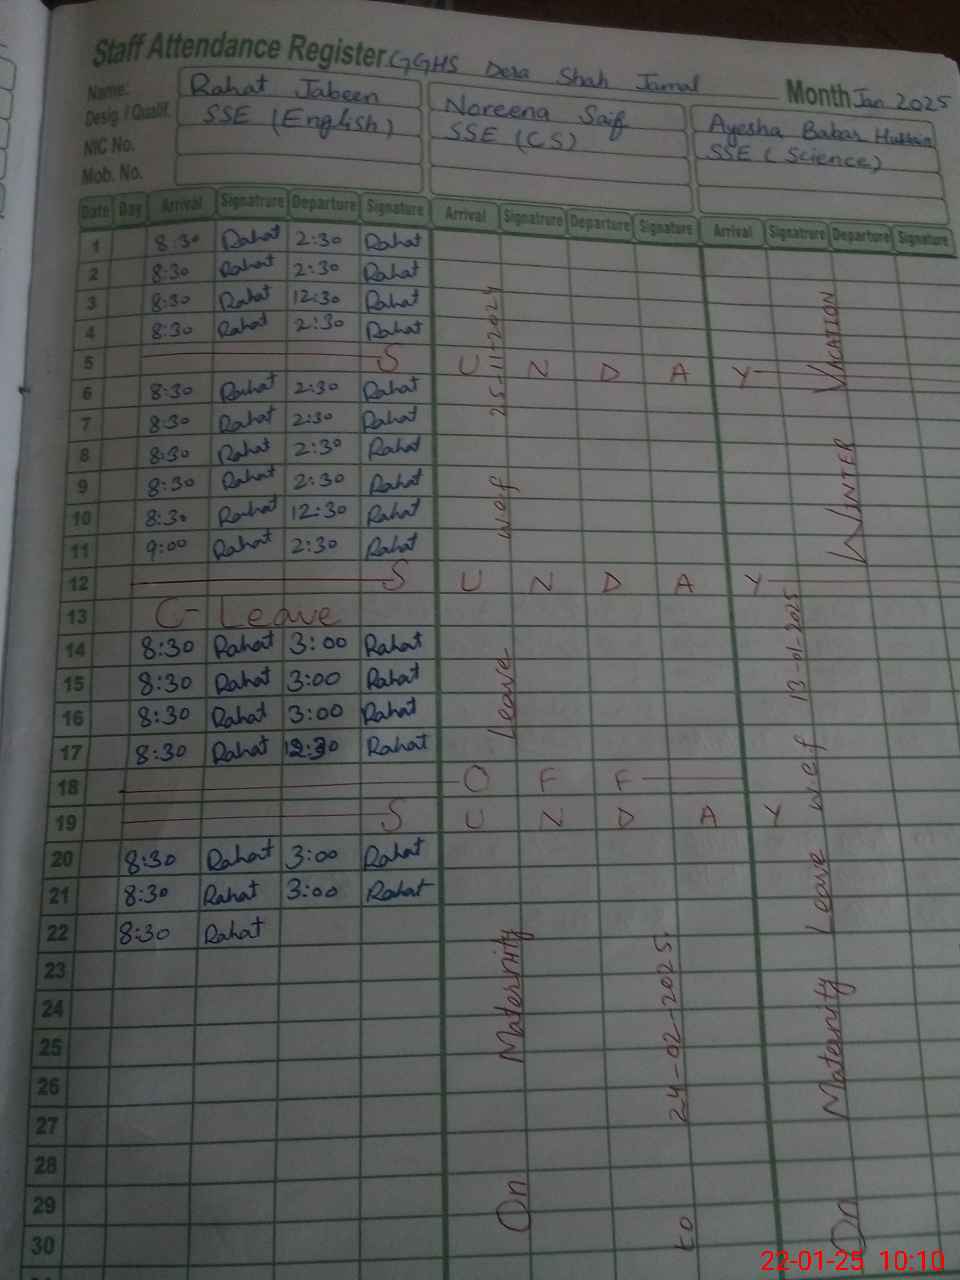 Staff Attendance Register GGHS Dera Shah Jamal Month Jan 2025
Name: Rahat Jabeen Noreena Saif Ayesha Babar Hussain
Desig. / Qualif. SSE (English) SSE (CS) SSE (Science)
NIC No.
Mob. No.
Date Day Arrival Signatrure Departure Signature Arrival Signatrure Departure Signature Arrival Signatrure Departure Signature
1 8:30 Rahat 2:30 Rahat
2 8:30 Rahat 2:30 Rahat
3 8:30 Rahat 12:30 Rahat
4 8:30 Rahat 2:30 Rahat
5 S U N D A Y
6 8:30 Rahat 2:30 Rahat
7 8:30 Rahat 2:30 Rahat
8 8:30 Rahat 2:30 Rahat
9 8:30 Rahat 2:30 Rahat
10 8:30 Rahat 12:30 Rahat
11 9:00 Rahat 2:30 Rahat
12 S U N D A Y
13 C- Leave
14 8:30 Rahat 3:00 Rahat
15 8:30 Rahat 3:00 Rahat
16 8:30 Rahat 3:00 Rahat
17 8:30 Rahat 12:30 Rahat
18 O F F
19 S U N D A Y
20 8:30 Rahat 3:00 Rahat
21 8:30 Rahat 3:00 Rahat
22 8:30 Rahat
23
24
25
26
27
28
29
30
On Maternity Leave w.e.f 25-11-2024
to 24-02-2025
WINTER VACATION
On Maternity Leave w.e.f 13-01-2025
22-01-25 10:10